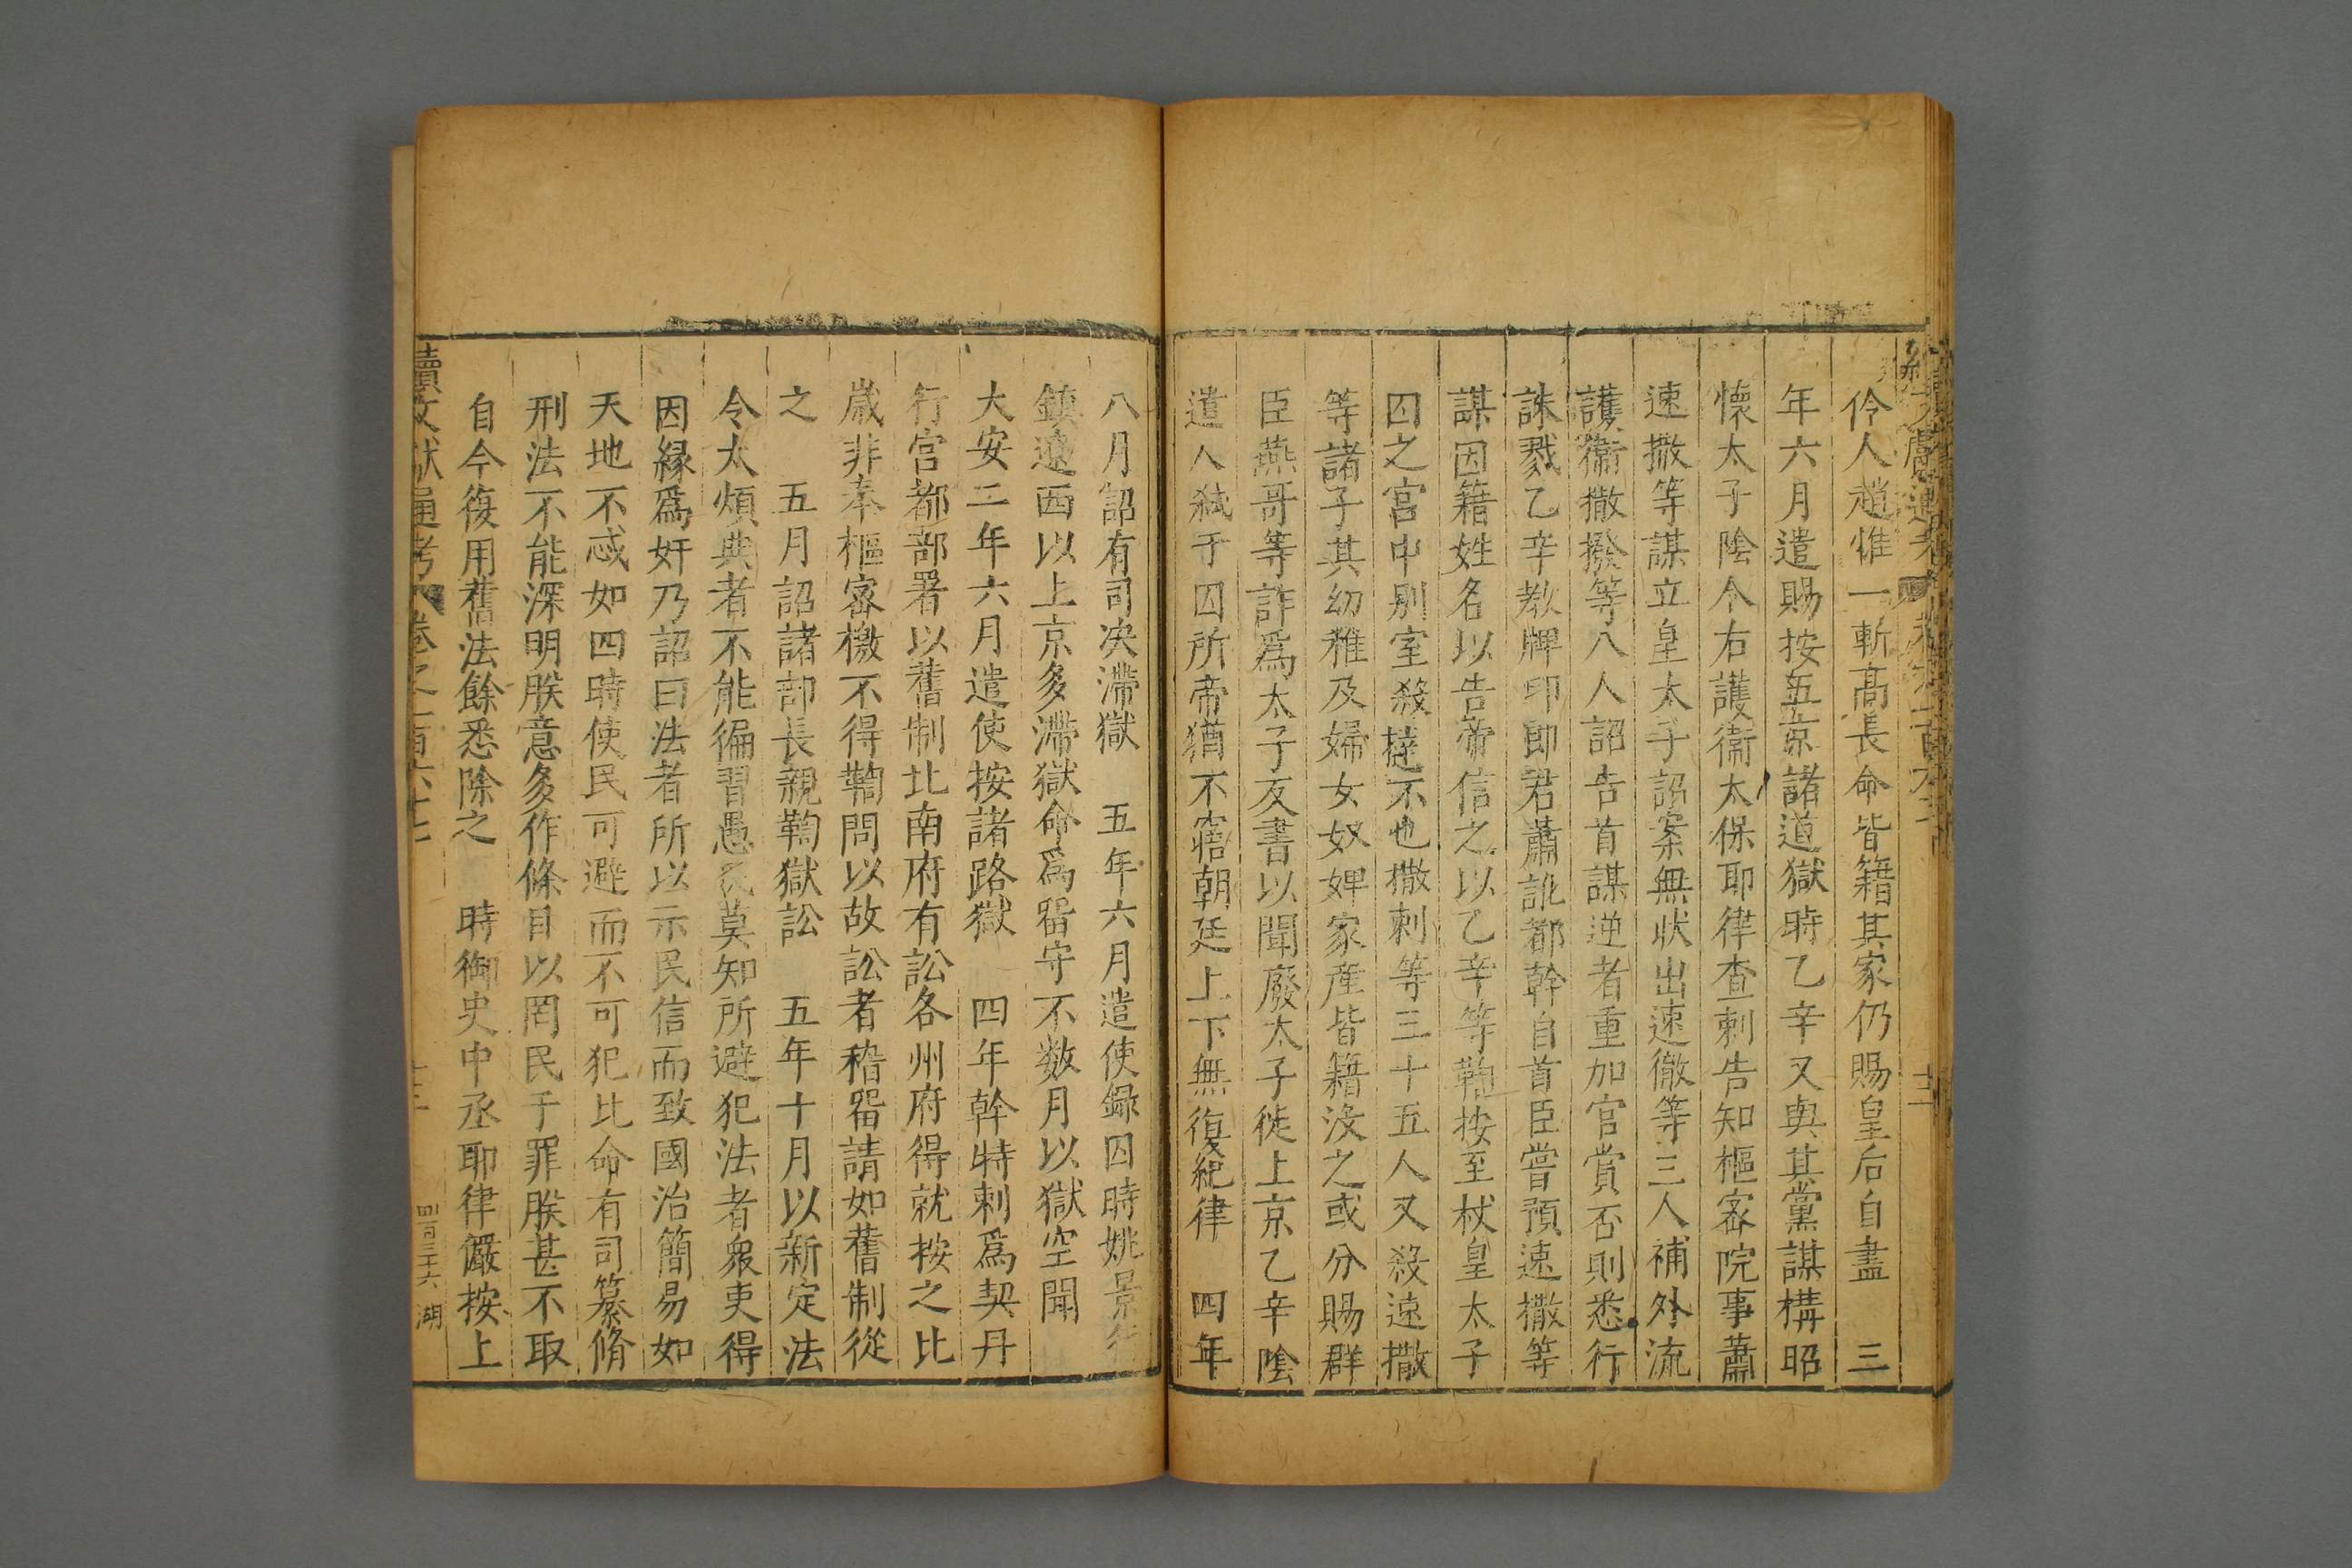 伶人趙惟一斬高長命皆籍其家仍賜皇后自盡　三
年六月遣賜按五京諸道獄時乙辛又與其黨謀構昭
懷太子陰令右護衛太保耶律查剌告知樞密院事蕭
速撒等謀立皇太子詔案無狀出速徹等三人補外流
護衛撒撥等八人詔告首謀逆者重加官賞否則悉行
誅戮乙辛教牌印郎君蕭訛都斡自首臣嘗預速撒等
謀因籍姓名以告帝信之以乙辛等鞫按至杖皇太子
囚之宮中別室殺撻不也撒剌等三十五人又殺速撒
等諸子其幼稚及婦女奴婢家產皆籍没之或分賜群
臣燕哥等詐爲太子友書以聞廢太子徙上京乙辛陰
遣人弒于囚所帝猶不寤朝廷上下無復紀律　四年
八月詔有司決滯獄　五年六月遣使録囚時姚景行
鎮遼西以上京多滯獄命爲畱守不数月以獄空聞
大安二年六月遣使按諸路獄　四年幹特剌爲契丹
行宮都部署以舊制北南府有訟各州府得就按之比
歲非奉樞密檄不得鞫問以故訟者稽畱請如舊制從
之　五月詔諸部長親鞫獄訟　五年十月以新定法
令太煩典者不能徧習愚民莫知所避犯法者衆吏得
因緣爲奸乃詔曰法者所以示民信而致國治簡易如
天地不忒如四時使民可避而不可犯比命有司纂脩
刑法不能深明朕意多作條目以罔民于罪朕甚不取
自今復用舊法餘悉除之　時御史中丞耶律儼按上
續文獻通考　卷之一百六十七　十三　四百三十六　湖